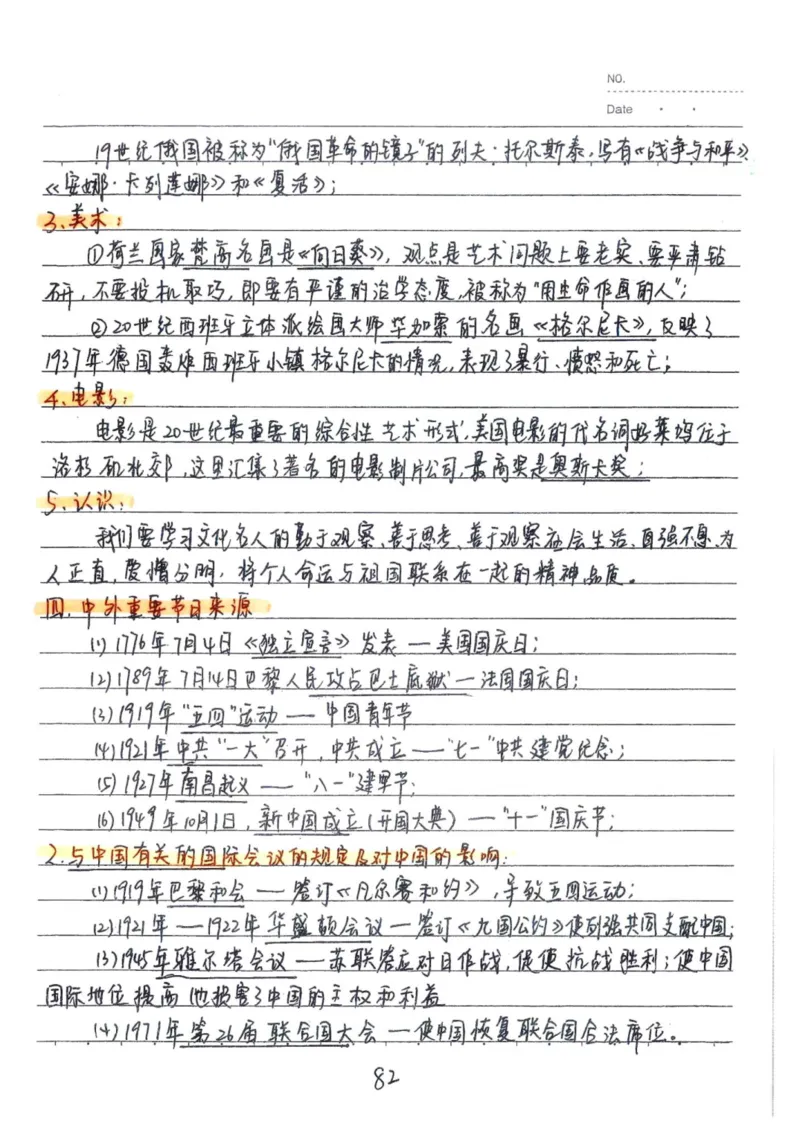 NO.
Date
19世纪俄国被称为"俄国革命的镜子"的列夫·托尔斯泰,写有《战争与和平》、
《安娜·卡列莲娜》和《复活》;
3、美术:
①荷兰画家梵高名画是《向日葵》,观点是艺术问题上要老实、要严肃钻
研,不要投机取巧,即要有严谨的治学态度,被称为"用生命作画的人";
②20世纪西班牙立体派绘画大师毕加索的名画《格尔尼卡》,反映了
1937年德国轰炸西班牙小镇格尔尼卡的情况,表现了暴行、愤怒和死亡;
4、电影:
电影是20世纪最重要的综合性艺术形式,美国电影的代名词好莱坞位于
洛杉矶北郊,这里汇集了著名的电影制片公司,最高奖是奥斯卡奖;
5、认识:
我们要学习文化名人的勤于观察、善于思考、善于观察社会生活、自强不息、为
人正直,爱憎分明,将个人命运与祖国联系在一起的精神品质。
四、中外重要节日来源
(1)1776年7月4日《独立宣言》发表—美国国庆日;
(2)1789年7月14日巴黎人民攻占巴士底狱—法国国庆日;
(3)1919年"五四"运动——中国青年节
(4)1921年中共"一大"召开,中共成立——"七一"中共建党纪念;
(5)1927年南昌起义——"八一"建军节;
(6)1949年10月1日,新中国成立(开国大典)—"十一"国庆节;
2.与中国有关的国际会议的规定及对中国的影响:
(1)1919年巴黎和会——签订《凡尔赛和约》,导致五四运动;
(2)1921年—1922年华盛顿会议—签订《九国公约》使列强共同支配中国;
(3)1945年雅尔塔会议——苏联答应对日作战,促使抗战胜利;使中国
国际地位提高他损害了中国的主权和利益
(4)1971年第26届联合国大会—使中国恢复联合国合法席位。
82